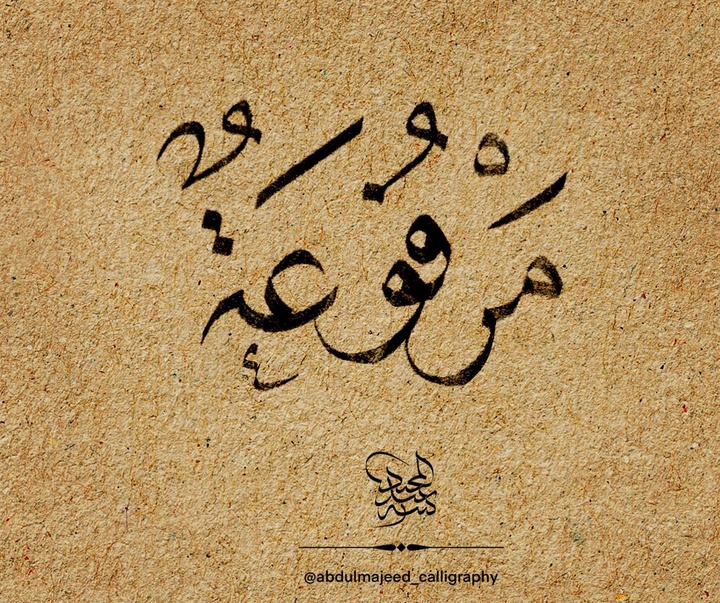 مَرْفُوعَةٌ
كتبه عبد المجيد
@abdulmajeed_calligraphy